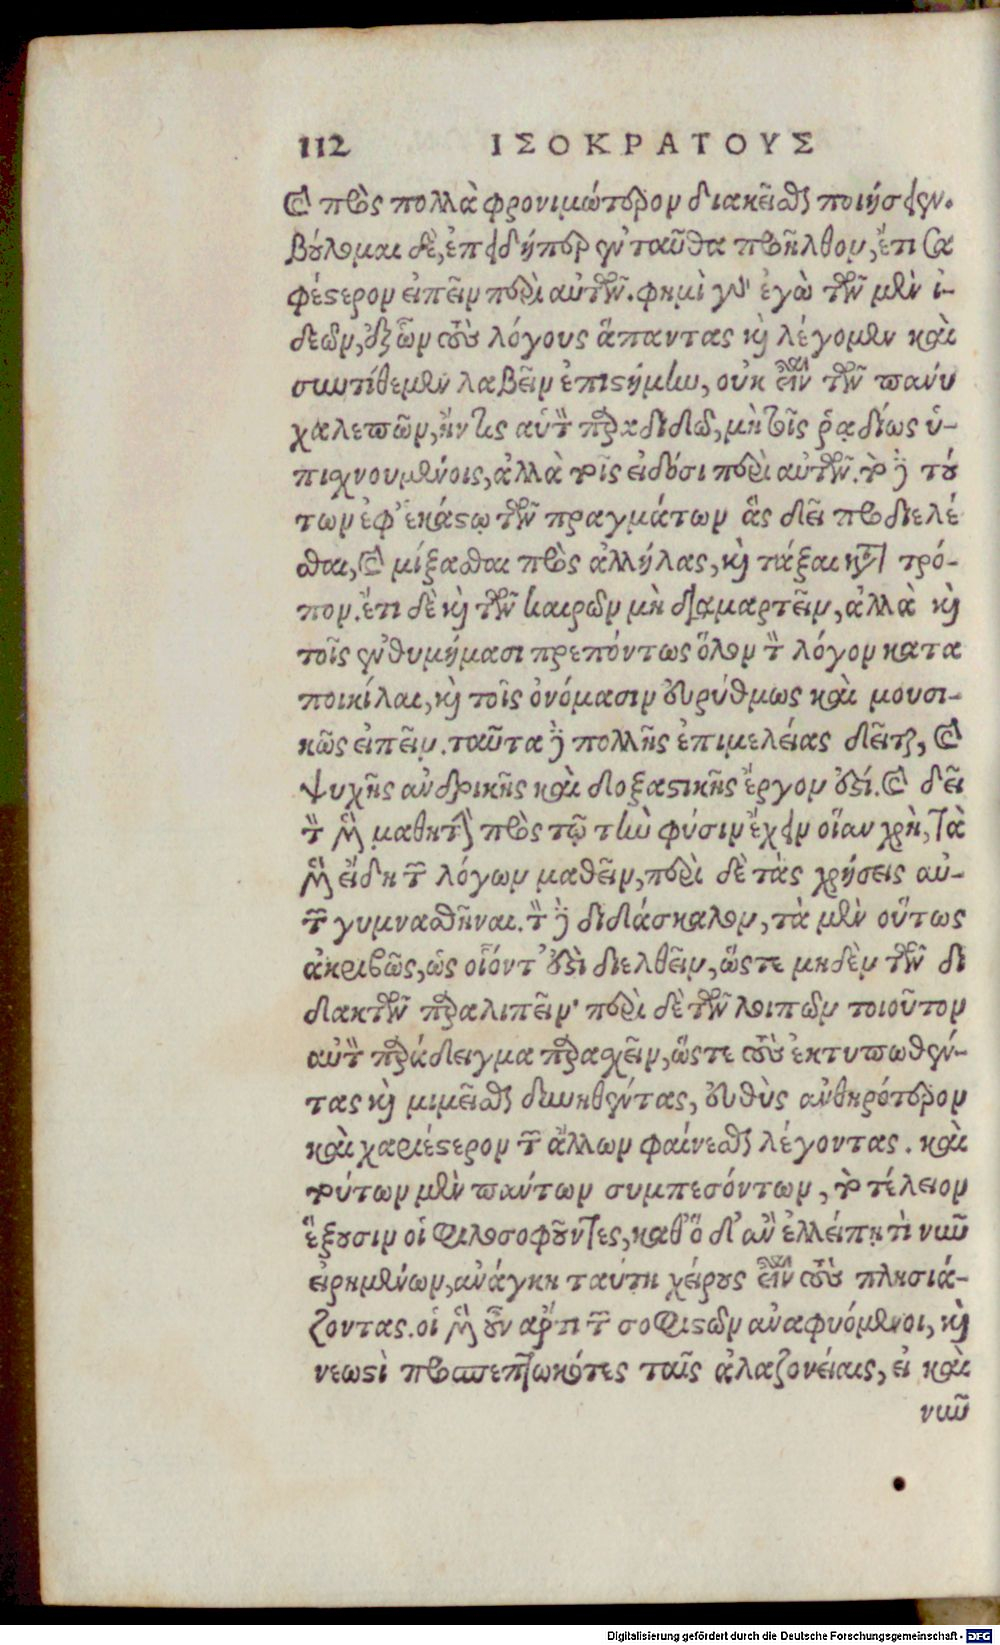 112 ΙΣΟΚΡΑΤΟΥΣ
καὶ πρὸς πολλὰ φρονιμώτερον διακεῖσθαι ποιήσειεν.
βούλομαι δὲ, ἐπειδήπερ ἐνταῦθα προῆλθον, ἔτι σα
φέστερον εἰπεῖν περὶ αὐτῶν. φημὶ γὰρ ἐγὼ τῶν μὲν ἰ-
δεῶν, ἐξ ὧν τοὺς λόγους ἅπαντας καὶ λέγομεν καὶ
συντίθεμεν λαβεῖν ἐπιστήμην, οὐκ εἶναι τῶν πάνυ
χαλεπῶν, ἤν τις αὑτὸν παραδιδῷ, μὴ τοῖς ῥᾳδίως ὑ-
πισχνουμένοις, ἀλλὰ τοῖς εἰδόσι περὶ αὐτῶν. τὸ δὲ τού
των ἐφ' ἑκάστῳ τῶν πραγμάτων ἃς δεῖ προδιελέ
σθαι, καὶ μίξασθαι πρὸς ἀλλήλας, καὶ τάξαι κατὰ τρό-
πον. ἔτι δὲ καὶ τῶν καιρῶν μὴ διαμαρτεῖν, ἀλλὰ καὶ
τοῖς ἐνθυμήμασι πρεπόντως ὅλον τὸν λόγον κατα
ποικίλαι, καὶ τοῖς ὀνόμασιν εὐρύθμως καὶ μουσι-
κῶς εἰπεῖν. ταῦτα δὲ πολλῆς ἐπιμελείας δεῖται, καὶ
ψυχῆς ἀνδρικῆς καὶ δοξαστικῆς ἔργον ἐστί. καὶ δεῖ
τὸν μὲν μαθητὴν πρὸς τῷ τὴν φύσιν ἔχειν οἵαν χρὴ, τὰ
μὲν εἴδη τῶν λόγων μαθεῖν, περὶ δὲ τὰς χρήσεις αὐ-
τῶν γυμνασθῆναι. τὸν δὲ διδάσκαλον, τὰ μὲν οὕτως
ἀκριβῶς, ὡς οἷόντ' ἐστὶ διελθεῖν, ὥστε μηδὲν τῶν δι
δακτῶν παραλιπεῖν· περὶ δὲ τῶν λοιπῶν τοιοῦτον
αὑτὸν παράδειγμα παρασχεῖν, ὥστε τοὺς ἐκτυπωθέν-
τας καὶ μιμεῖσθαι δυνηθέντας, εὐθὺς ἀνθηρότερον
καὶ χαριέστερον τῶν ἄλλων φαίνεσθαι λέγοντας. καὶ
τούτων μὲν πάντων συμπεσόντων, τὸ τέλειον
ἕξουσιν οἱ φιλοσοφοῦντες, καθ' ὃ δ' ἂν ἐλλείπῃ τὶ νῦν
εἰρημένων, ἀνάγκη ταύτῃ χείρους εἶναι τοὺς πλησιά-
ζοντας. οἱ μὲν οὖν ἄρτι τῶν σοφιστῶν ἀναφυόμενοι, καὶ
νεωστὶ προσπεπτωκότες ταῖς ἀλαζονείαις, εἰ καὶ
νῦν
Digitalisierung gefördert durch die Deutsche Forschungsgemeinschaft - DFG